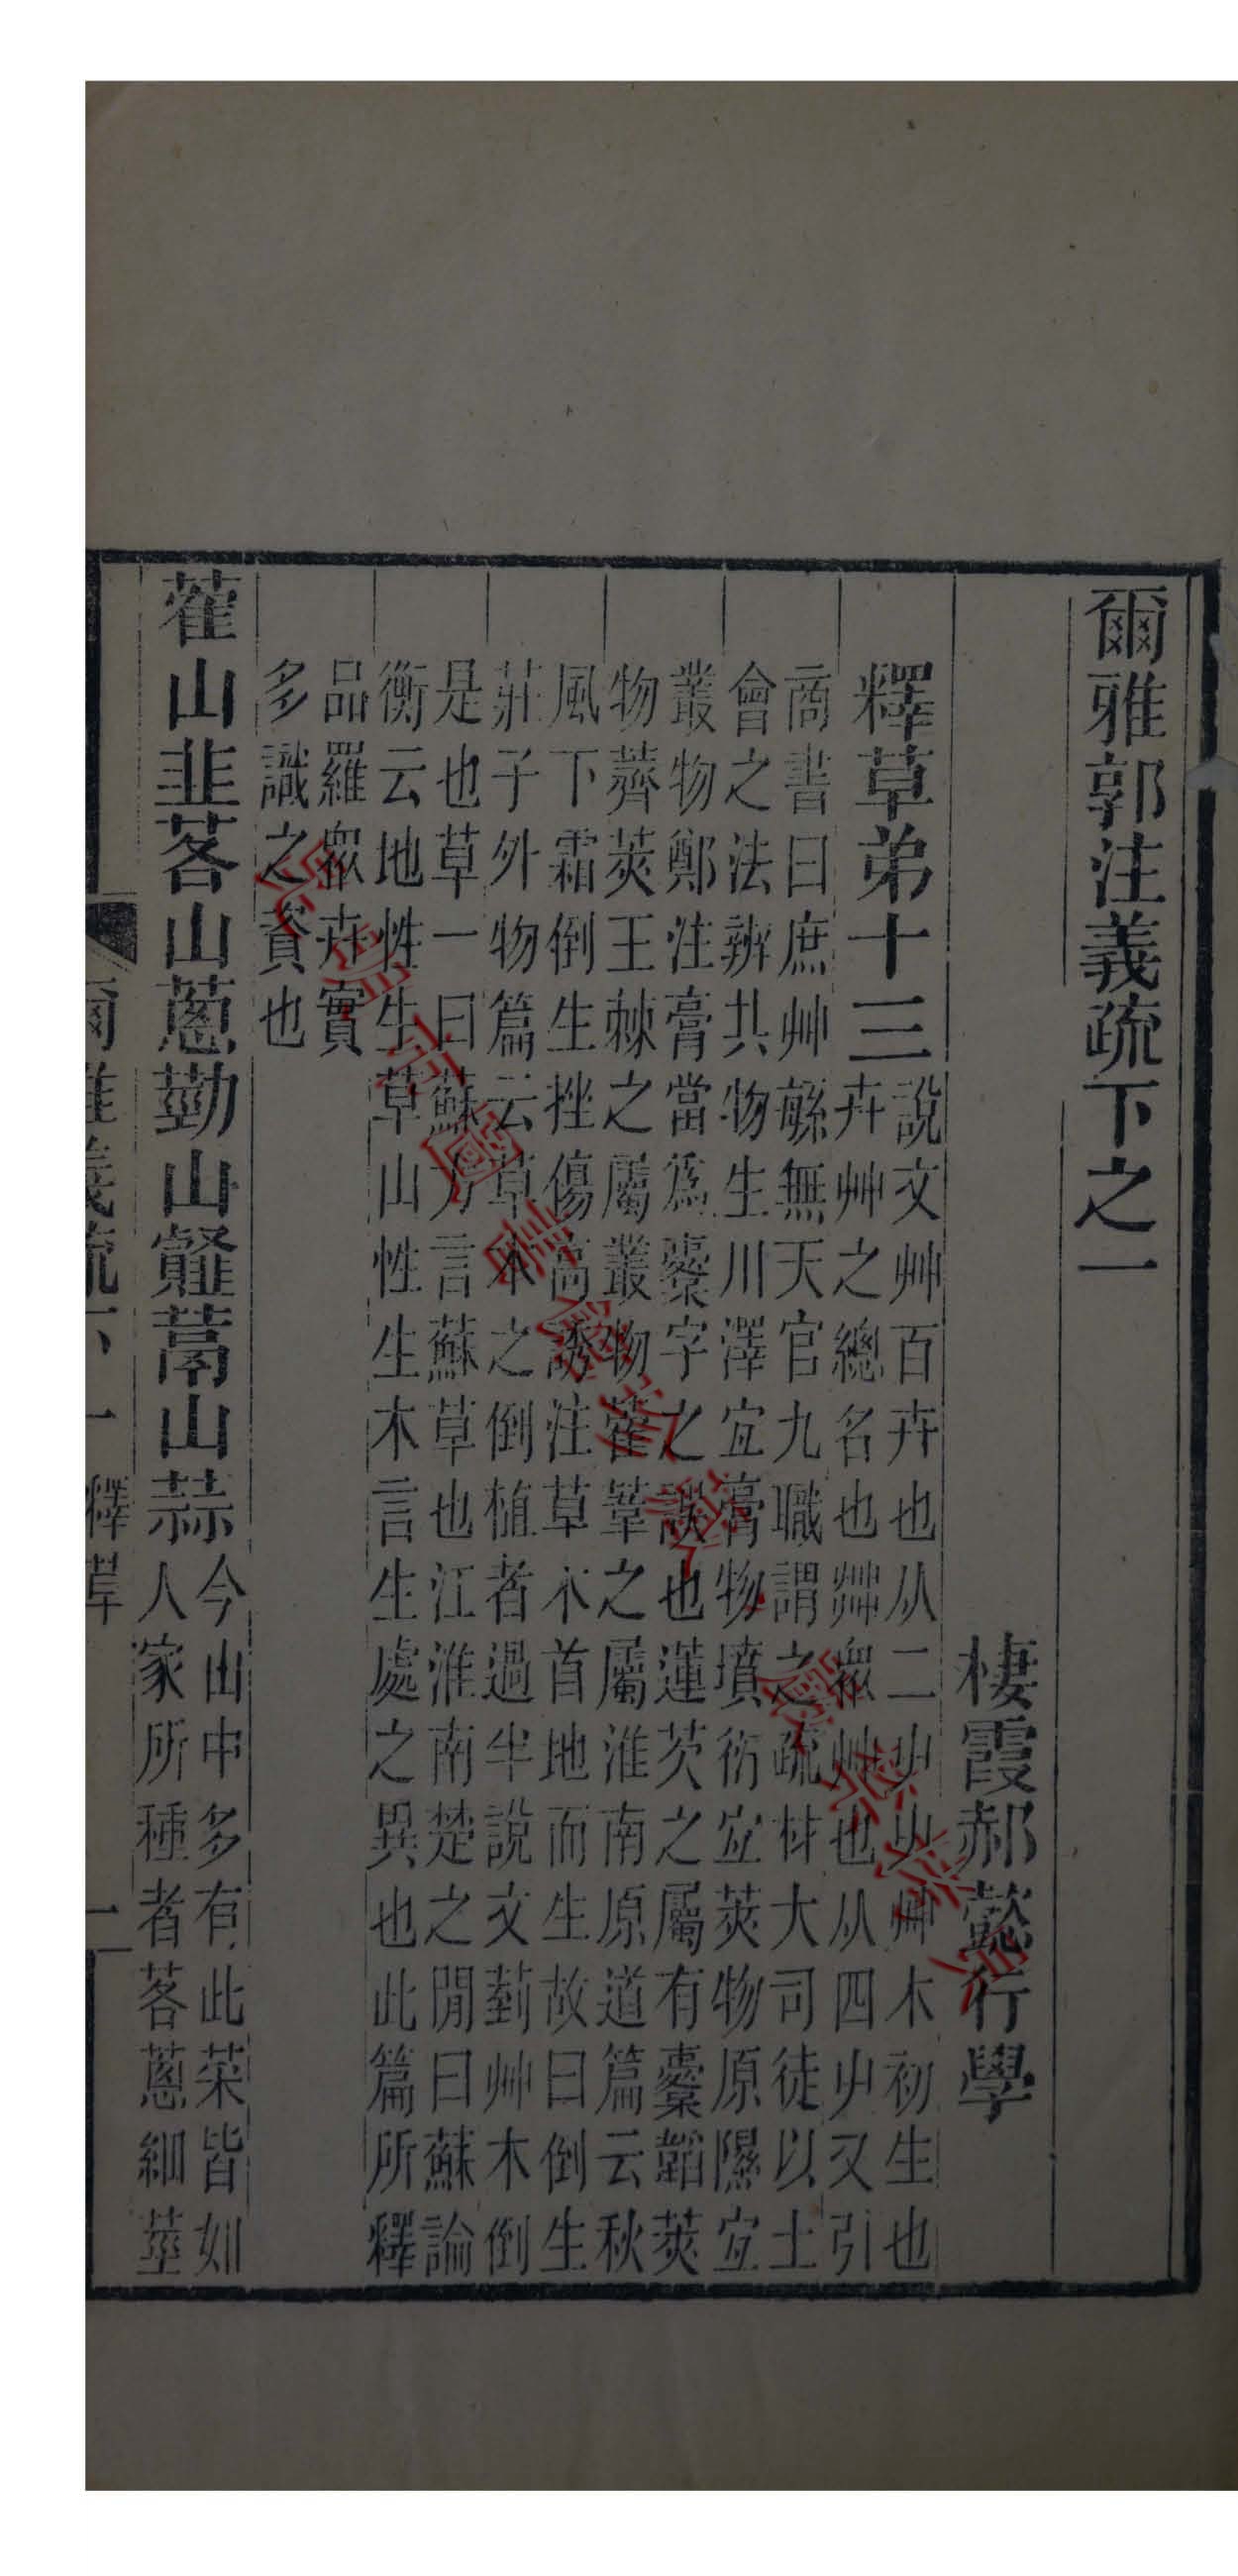 爾雅郭注義疏下之一
棲霞郝懿行學
釋草弟十三
說文艸百卉也从二屮屮艸木初生也
卉艸之總名也茻眾艸也从四屮又引
商書曰庶艸緐無天官九職謂之疏材大司徒以土
會之法辨共物生川澤宜膏物墳衍宜莢物原隰宜
叢物鄭注膏當爲櫜字之誤也蓮芡之屬有櫜韜莢
物薺莢王棘之屬叢物萑葦之屬淮南原道篇云秋
風下霜倒生挫傷高誘注草木首地而生故曰倒生
莊子外物篇云草木之倒植者過半說文菿艸木倒
是也草一曰蘇方言蘇草也江淮南楚之閒曰蘇論
衡云地性生草山性生木言生處之異也此篇所釋
品羅眾卉實
多識之資也
藿山韭茖山蔥葝山䪥蒚山蒜
今山中多有此菜皆如
人家所種者茖蔥細莖
爾雅義疏下一 釋草 一